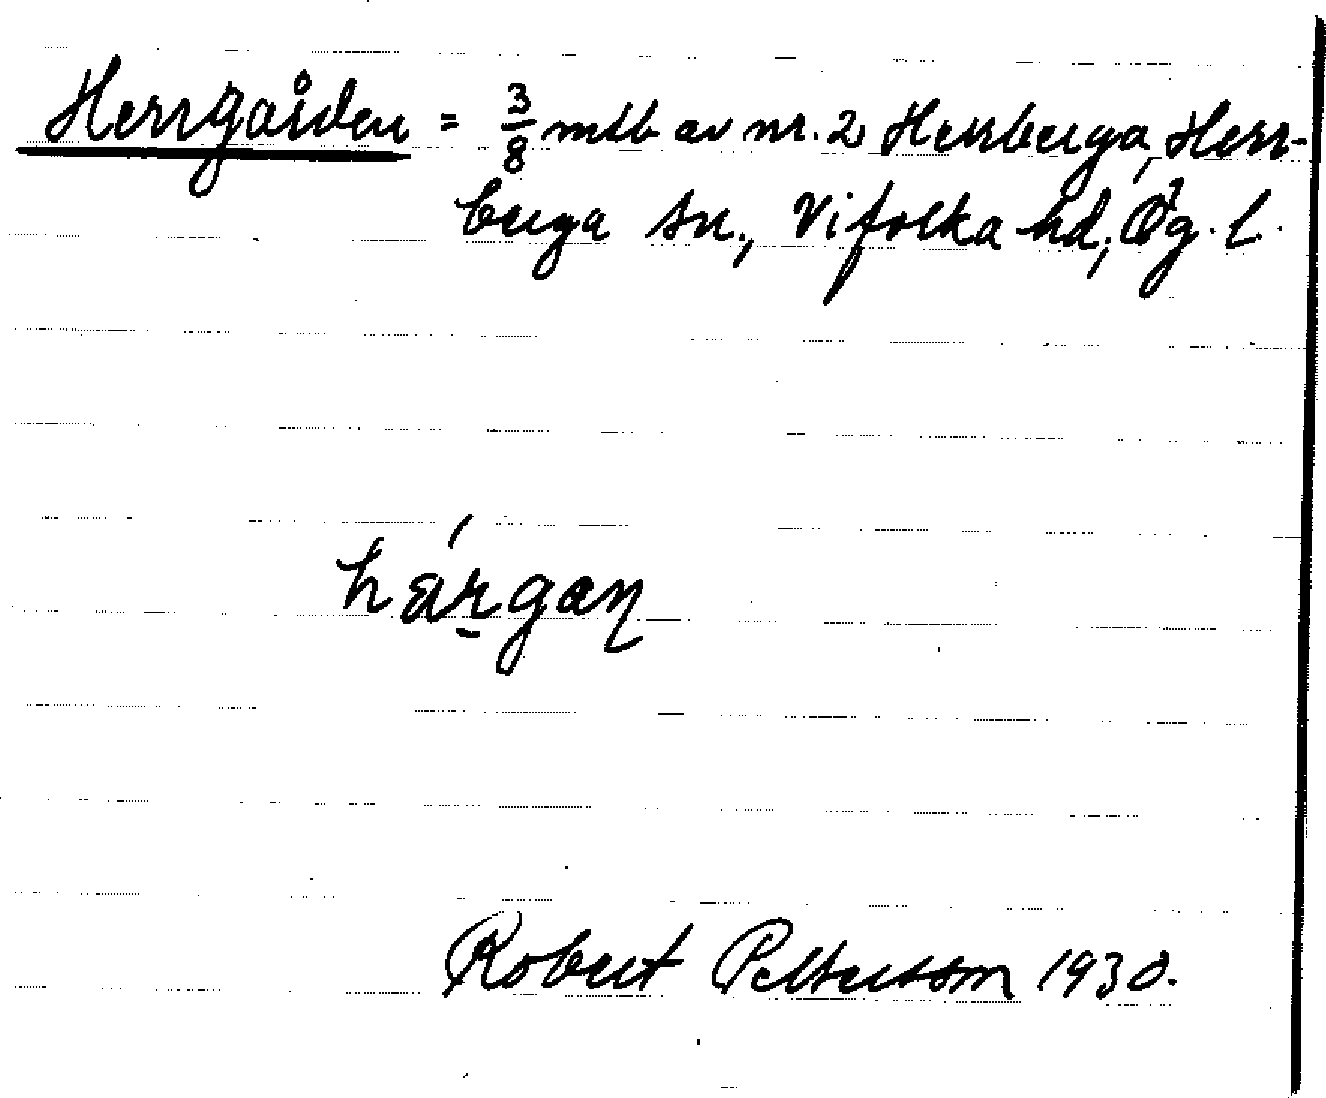 Herrgården = 3/8 mtl av nr. 2 Herrberga, Herr-
berga sn., Vifolka hd, Ög. l.
hárgan
Robert Pettersson 1930.